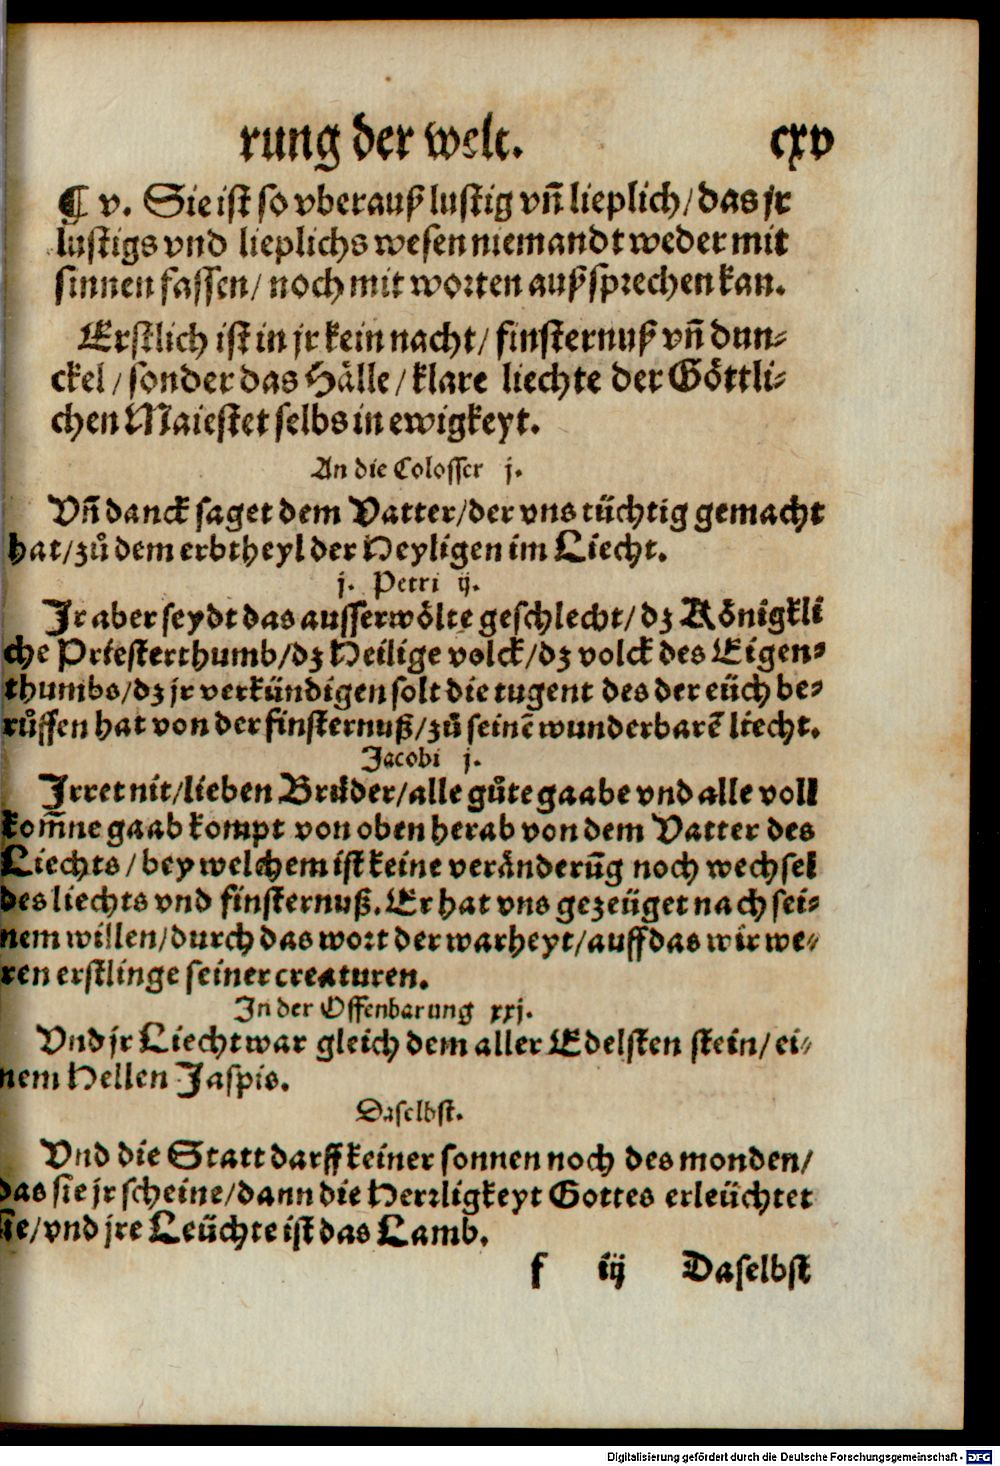 rung der welt. cxv
¶ v. Sie ist so vberauß lustig vn̄ lieplich/ das jr
lustigs vnd lieplichs wesen niemandt weder mit
sinnen fassen/ noch mit worten außsprechen kan.
Erstlich ist in jr kein nacht/ finsternuß vn̄ dun⸗
ckel/ sonder das Hälle/ klare liechte der Göttli⸗
chen Maiestet selbs in ewigkeyt.
An die Colosser j.
Vn̄ danck saget dem Vatter/ der vns tüchtig gemacht
hat/ zů dem erbtheyl der Heyligen im Liecht.
j. Petri ij.
Jr aber seydt das ausserwölte geschlecht/ dz Königkli
che Priesterthumb/ dz Heilige volck/ dz volck des Eigen⸗
thumbs/ dz jr verkündigen solt die tugent des der eüch be⸗
růffen hat von der finsternuß/ zů seinē wunderbarē liecht.
Jacobi j.
Jrret nit/ lieben Brůder/ alle gůte gaabe vnd alle voll
kom̄ne gaab kompt von oben herab von dem Vatter des
Liechts/ bey welchem ist keine veränderūg noch wechsel
des liechts vnd finsternuß. Er hat vns gezeüget nach sei⸗
nem willen/ durch das wort der warheyt/ auff das wir we⸗
ren erstlinge seiner creaturen.
In der Offenbarung xxj.
Vnd jr Liecht war gleich dem aller Edelsten stein/ ei⸗
nem Hellen Jaspis.
Daselbst.
Vnd die Statt darff keiner sonnen noch des monden/
das sie jr scheine/ dann die Herrligkeyt Gottes erleüchtet
sie/ vnd jre Leüchte ist das Lamb.
f iij Daselbst
Digitalisierung gefördert durch die Deutsche Forschungsgemeinschaft - DFG